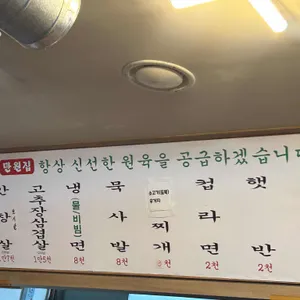 만원집 항상 신선한 원육을 공급하겠습니다
안창살 1만7천
고추장삼겹살 1만5천
냉면 (물·비빔) 8천
묵사발 8천
찌개
컵라면 2천
햇반 2천